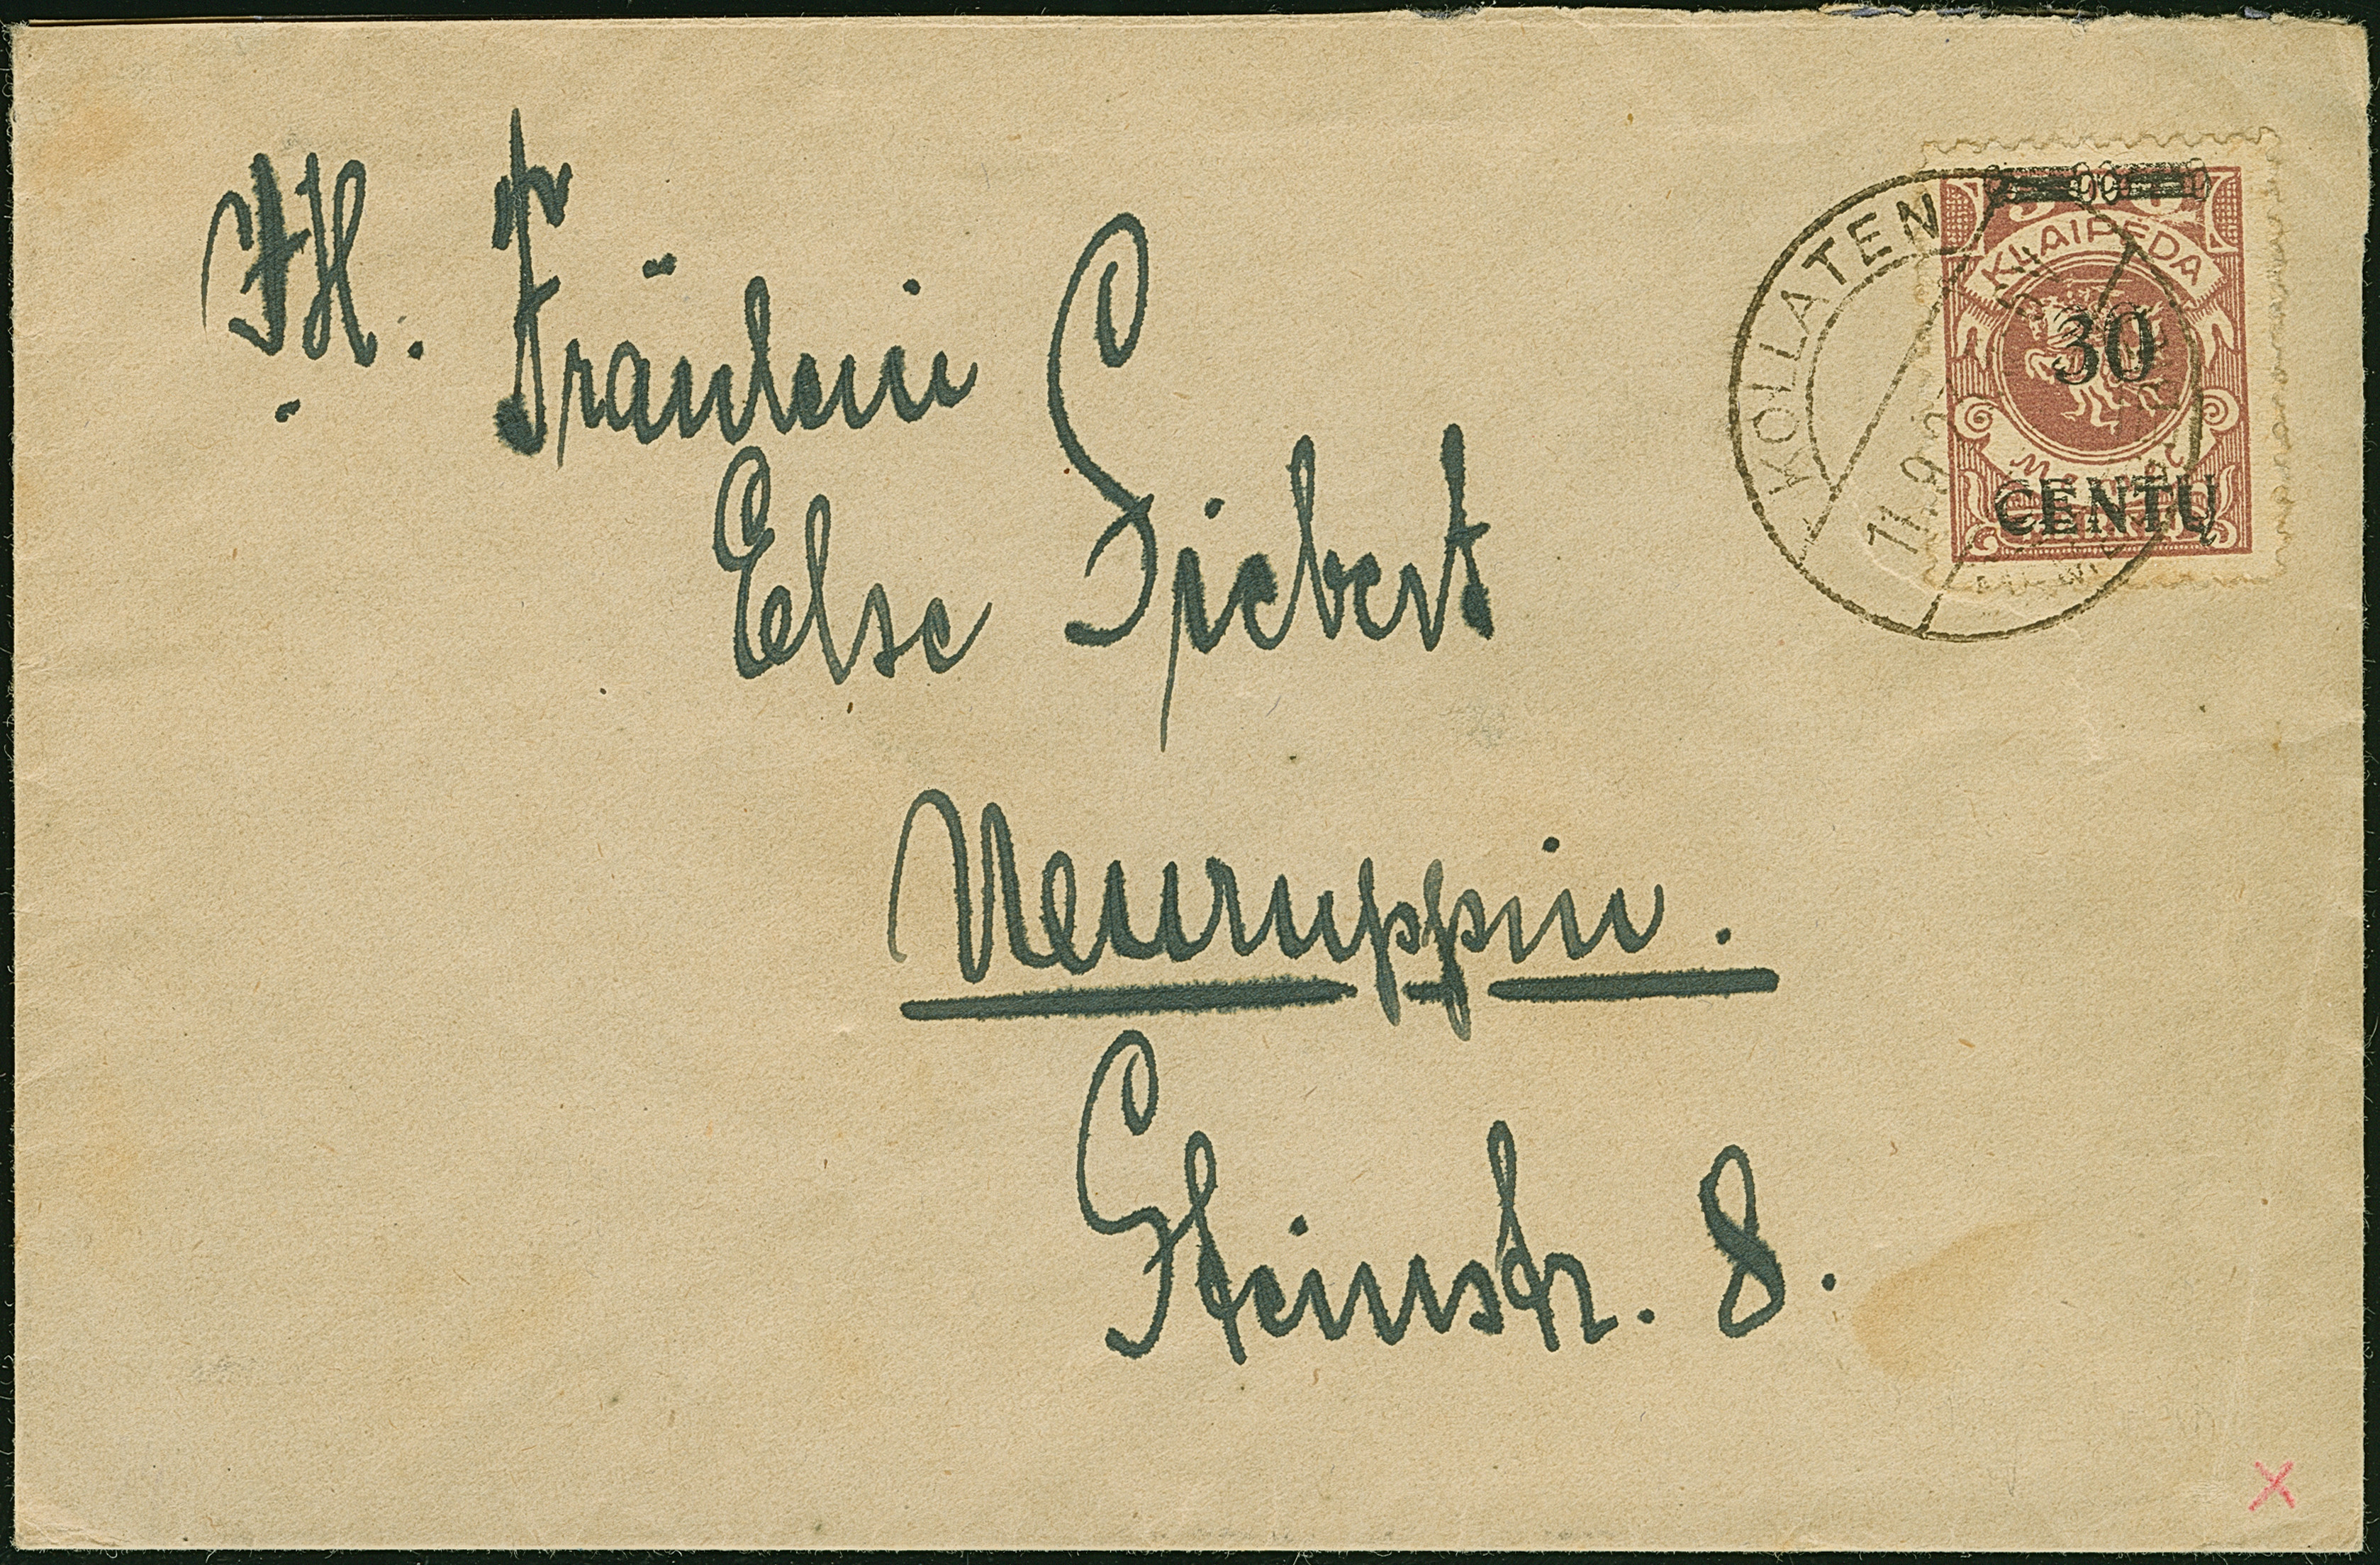 J.H.
Fräulein
Else Siebert
Neuruppin.
Steinstr. 8.
KOLLATEN
11.9.2
KLAIPEDA
30
CENTŲ